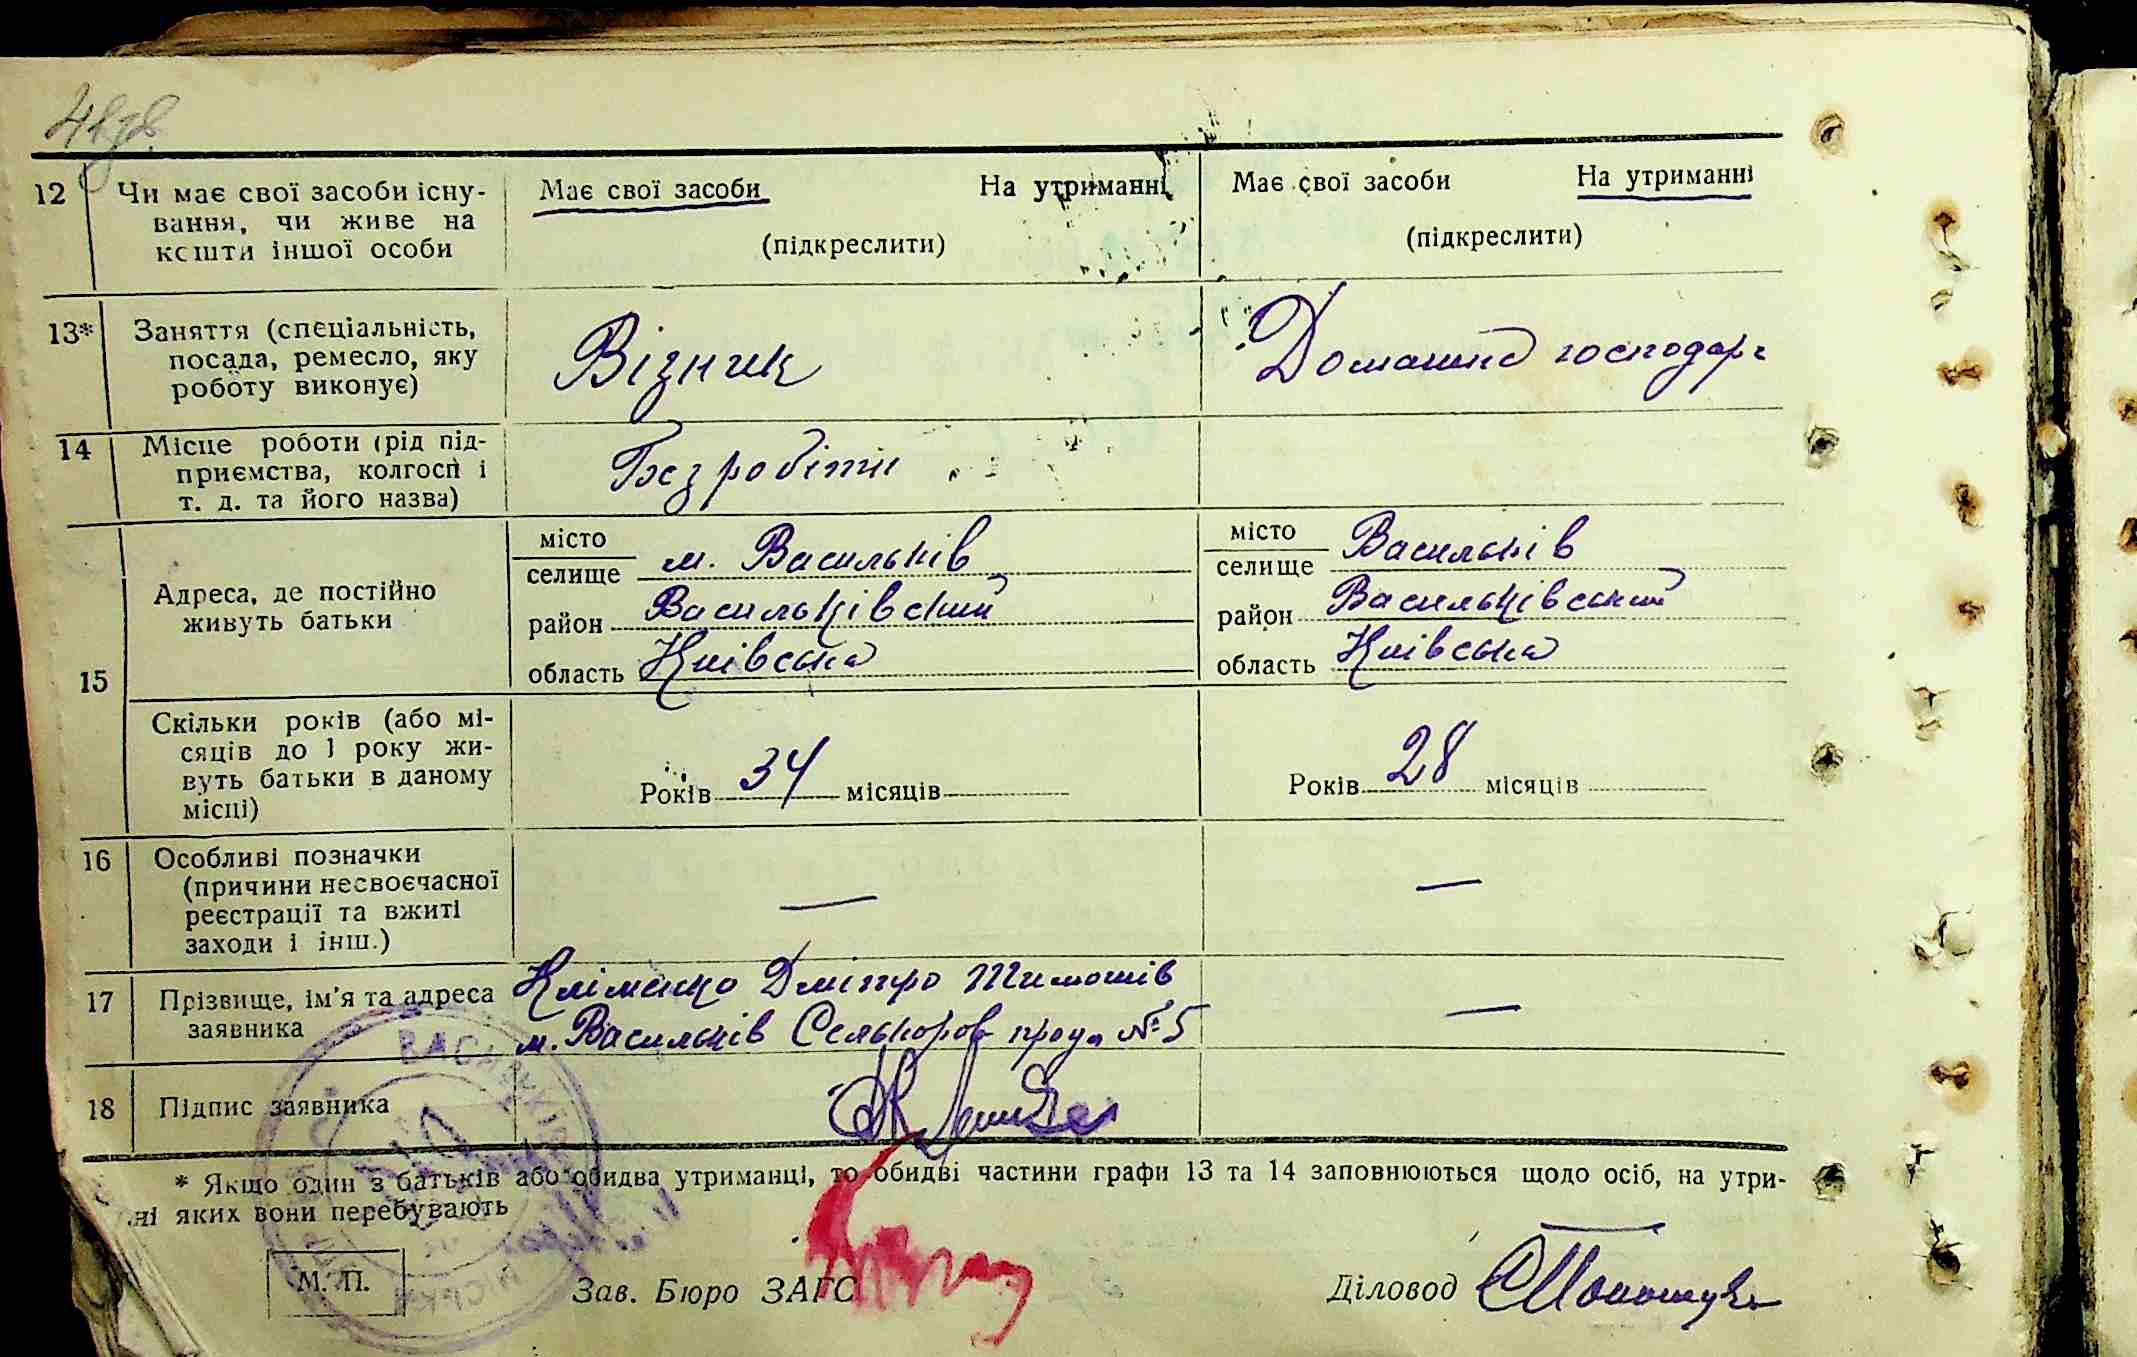 4зв.
12 Чи має свої засоби існу-
вання, чи живе на
кошти іншої особи
Має свої засоби На утриманні
(підкреслити)
Має свої засоби На утриманні
(підкреслити)
13* Заняття (спеціальність,
посада, ремесло, яку
роботу виконує)
Візник
Домашнє господар
14 Місце роботи (рід під-
приємства, колгосп і
т. д. та його назва)
Без робітн
15
Адреса, де постійно
живуть батьки
місто
селище м. Васильків
район Васильківський
область Київська
місто
селище Васильків
район Васильківський
область Київська
Скільки років (або мі-
сяців до 1 року жи-
вуть батьки в даному
місці)
Років 34 місяців
Років 28 місяців
16 Особливі позначки
(причини несвоєчасної
реєстрації та вжиті
заходи і інш.)
—
—
17 Прізвище, ім'я та адреса
заявника
Кліменко Дмітро Тимошів
м. Васильків Селькоров пров. № 5
—
18 Підпис заявника
* Якщо один з батьків або обидва утриманці, то обидві частини графи 13 та 14 заповнюються щодо осіб, на утри-
ні яких вони перебувають
М. П.
Зав. Бюро ЗАГС
Діловод